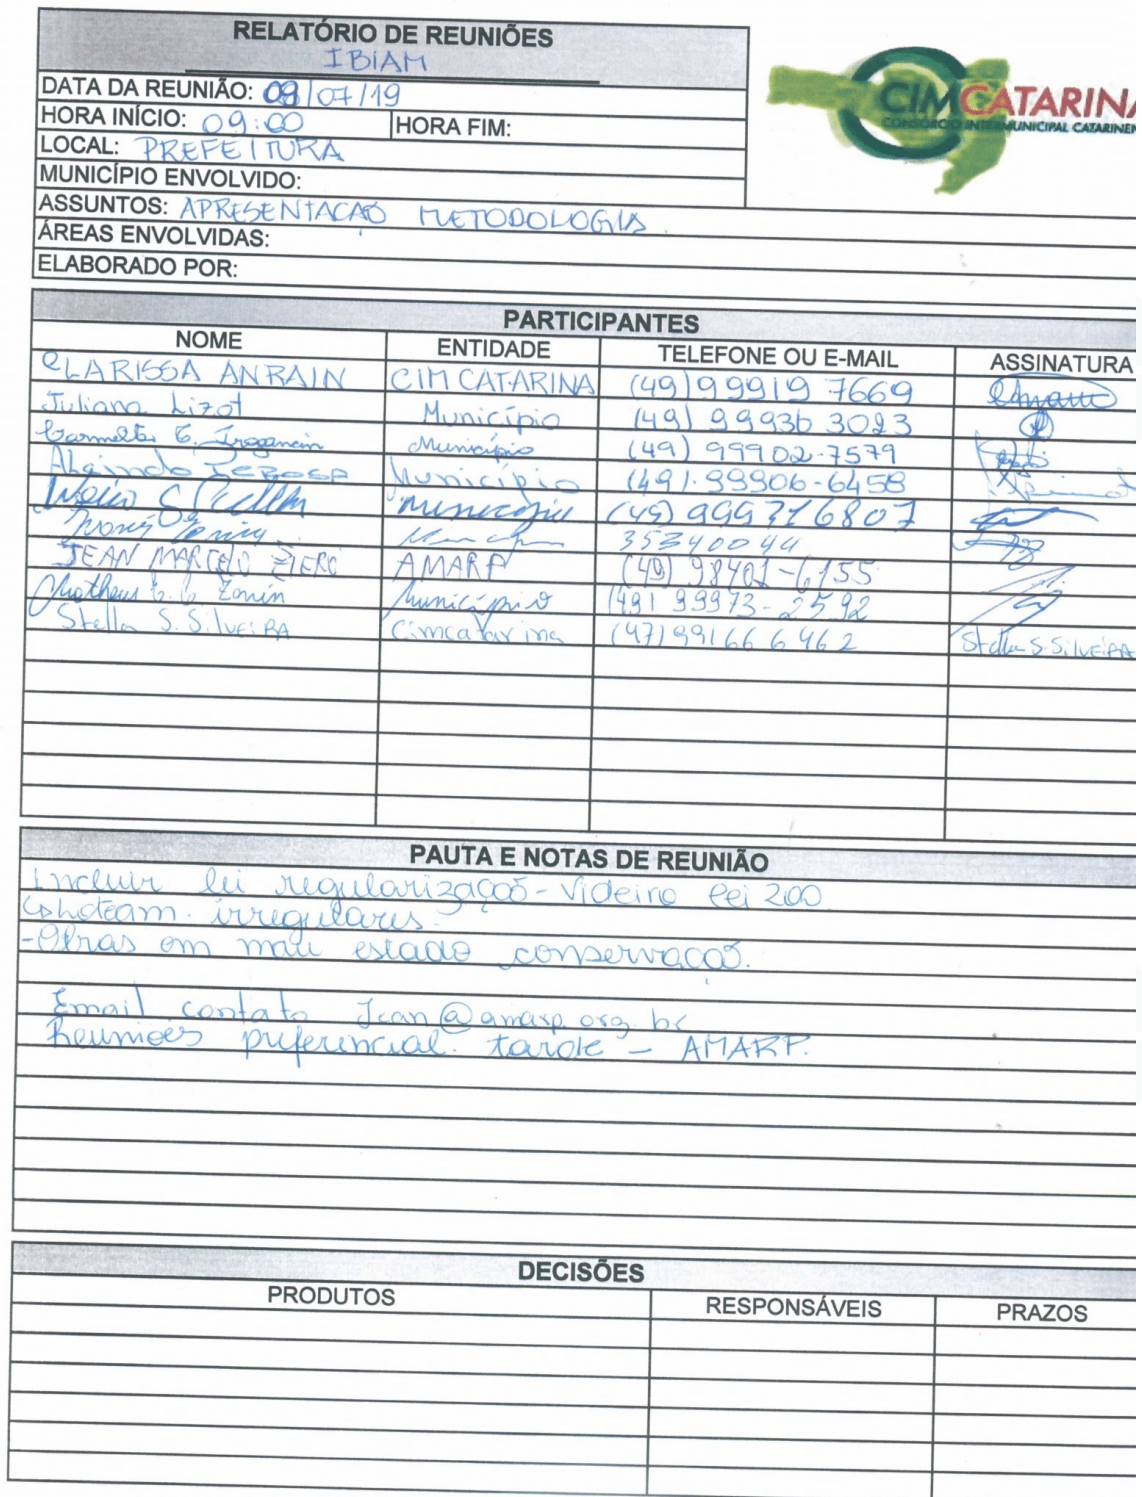 RELATÓRIO DE REUNIÕES
IBIAM
CIMCATARINA
CONSÓRCIO INTERMUNICIPAL CATARINEN
DATA DA REUNIÃO: 09/07/19
HORA INÍCIO: 09:00 HORA FIM:
LOCAL: PREFEITURA
MUNICÍPIO ENVOLVIDO:
ASSUNTOS: APRESENTAÇÃO METODOLOGIA.
ÁREAS ENVOLVIDAS:
ELABORADO POR:
PARTICIPANTES
NOME ENTIDADE TELEFONE OU E-MAIL ASSINATURA
CLARISSA ANRAIN CIMCATARINA (49) 99919 7669
Juliana Lizot Município (49) 99936 3023
Município (49) 99902-7579
Município (49) 99906-6458
Município (49) 999316807
35340044
JEAN MARCELO AMARP (49) 98401-6155
Matheus Zonin Município (49) 99973-2592
Stella S. SilVEiRA Cimcatarina (47) 99166 6462 Stella S. SilVEiRA
PAUTA E NOTAS DE REUNIÃO
Incluir lei regularização - Videira Lei 200
↳ Loteam. irregulares.
- Obras em mau estado conservação.
Email contato Jean@amarp.org.br
Reuniões preferencial tarde - AMARP.
DECISÕES
PRODUTOS RESPONSÁVEIS PRAZOS